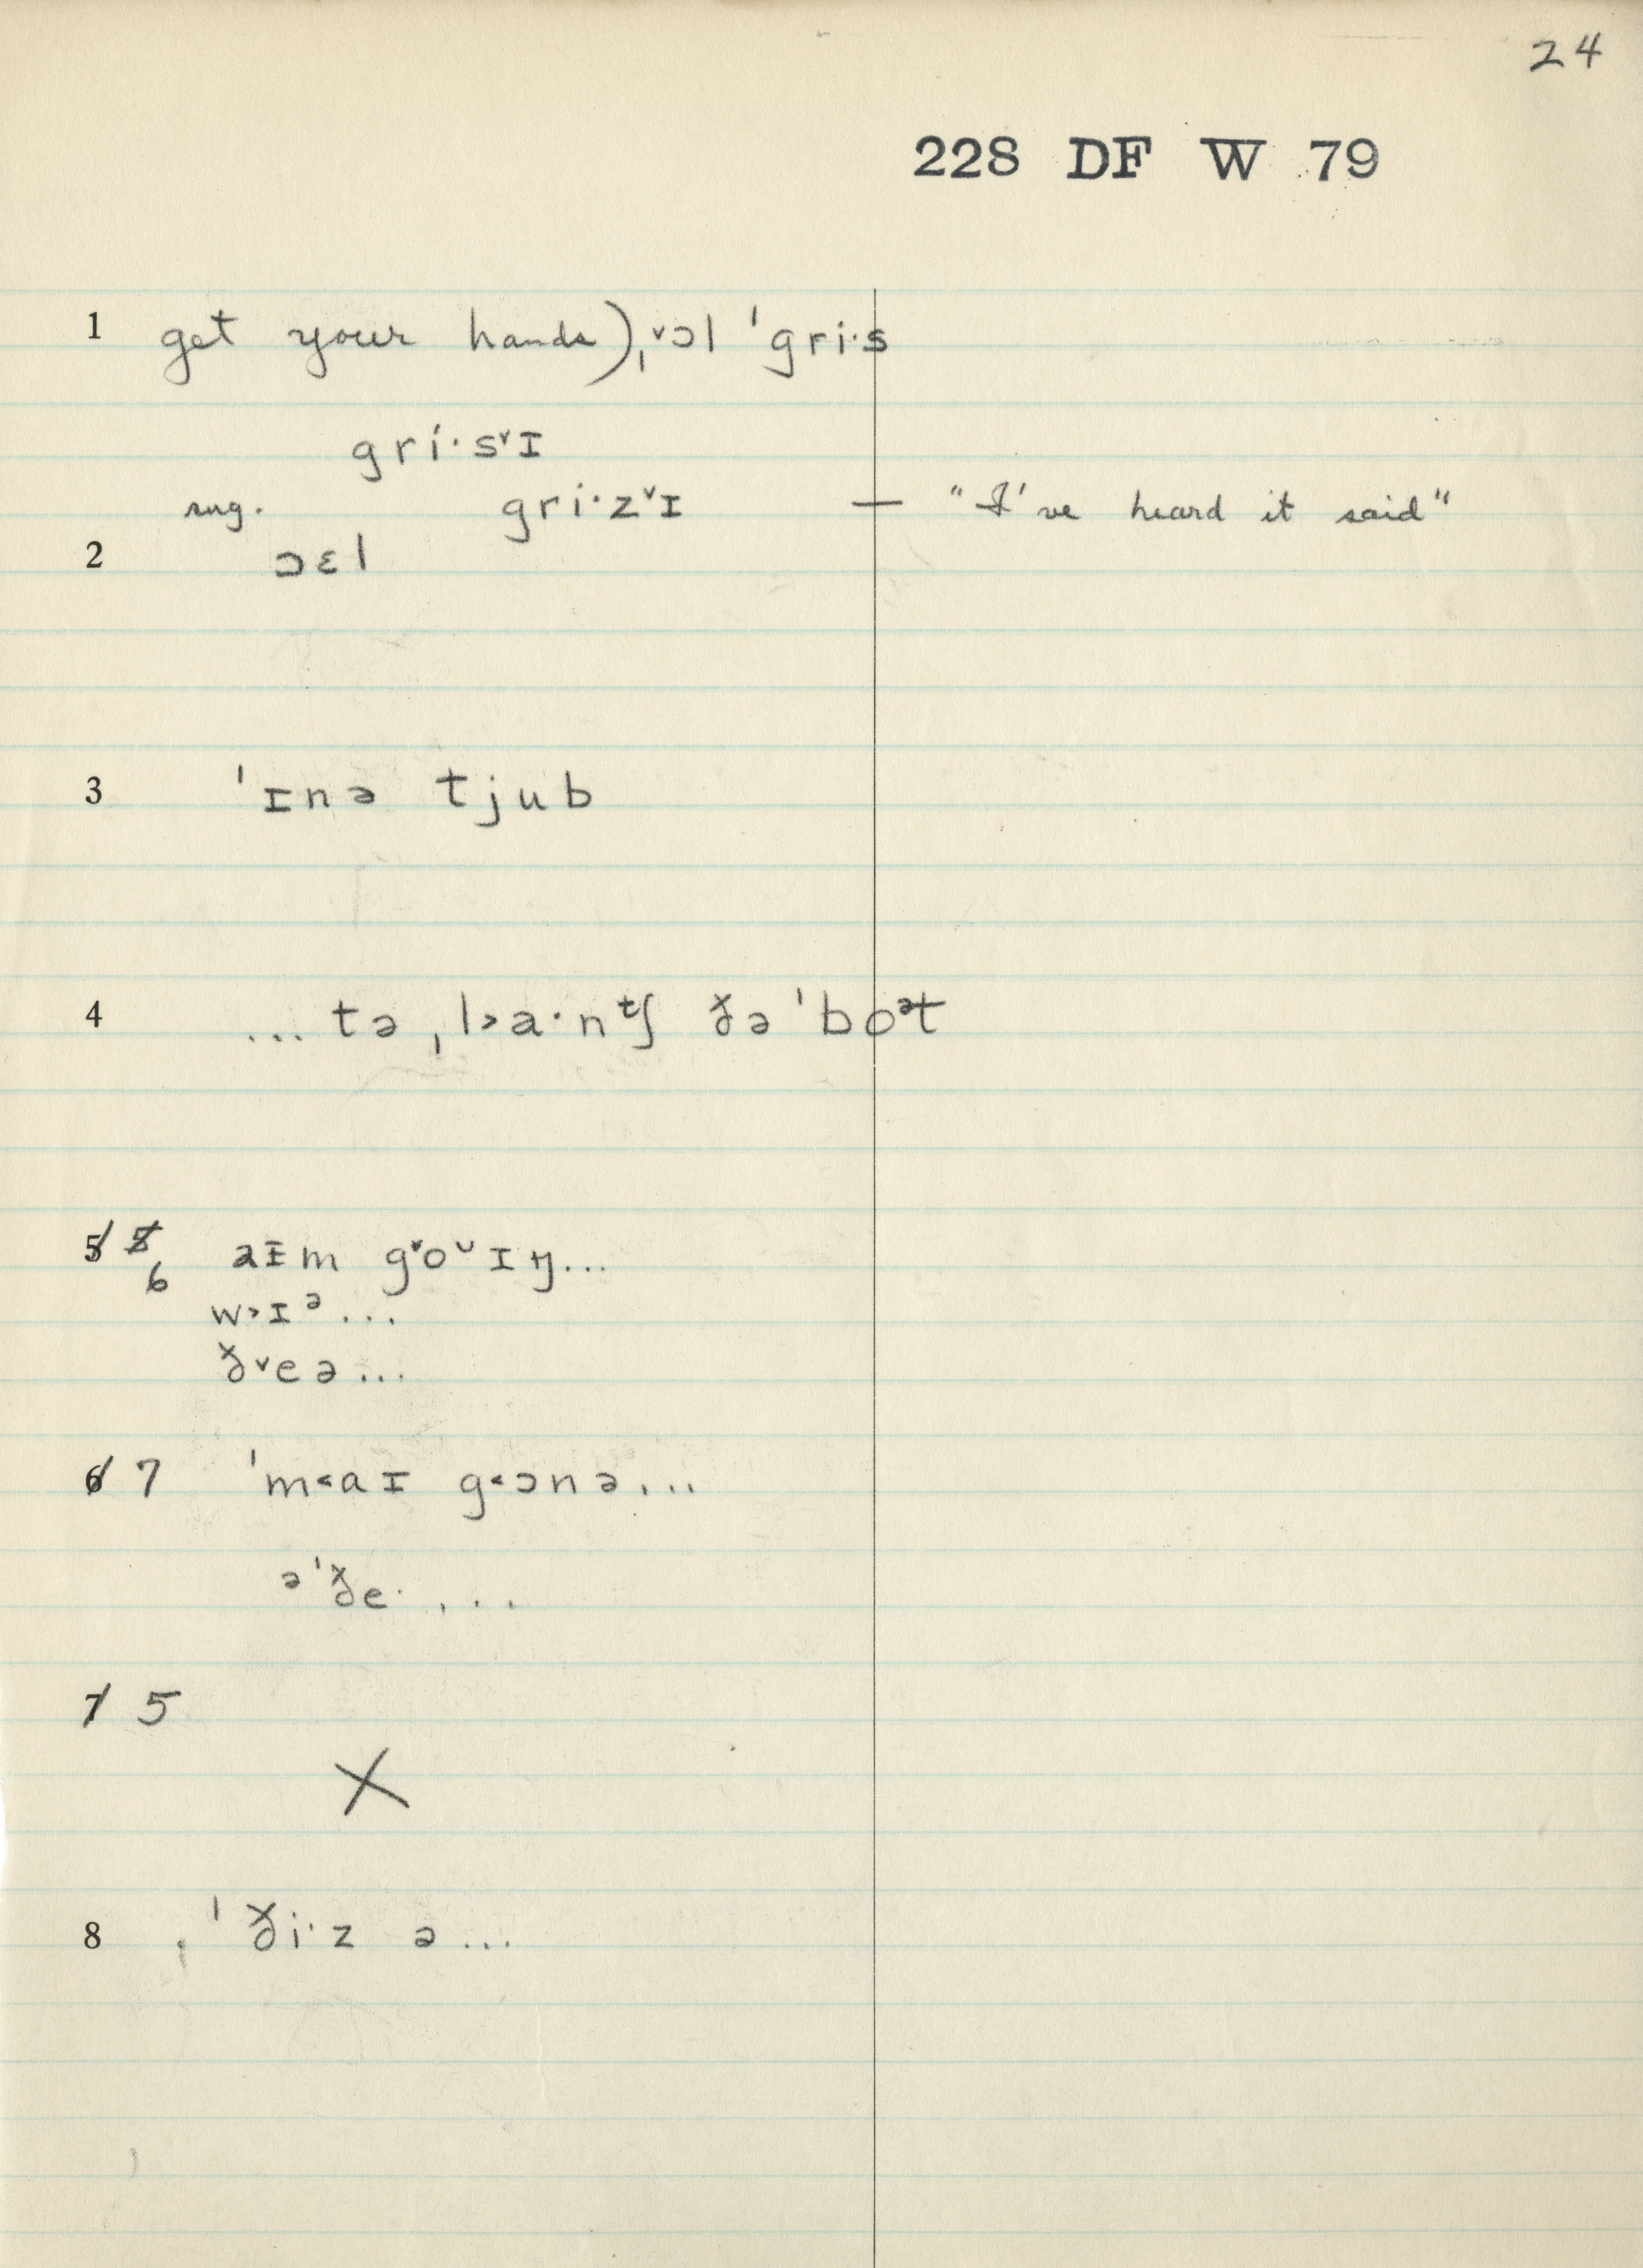 24
228 DF W 79
1 get your hands),ˌ˅ɔl ˈgri·s
gri·s˅ɪ
sug. gri·z˅ɪ — "I've heard it said"
2 ɔɛl
3 ˈɪnə tjub
4 ... tə ˌl˃a·ntʃ ðə ˈboᵊt
5 5 6 aɨm g˅oᵕɪŋ...
w˃ɪᵊ...
ð˅eə...
6 7 ˈm˂aɪ g˂ɔnə...
ᵊˈðe· ...
7 5
X
8 ˈði·z ə...